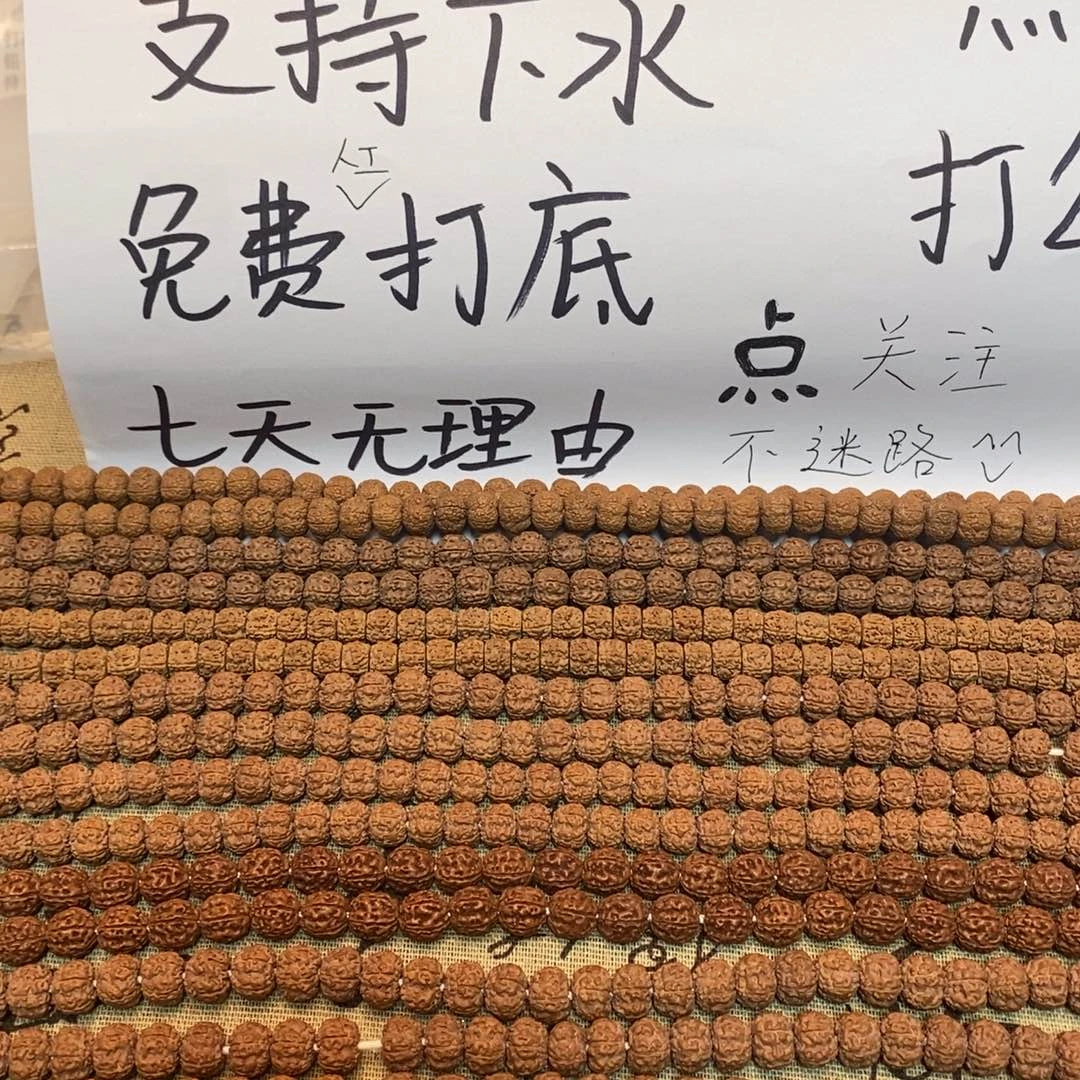 支持下水
人工
免费打底
打
点关注
七天无理由
不迷路